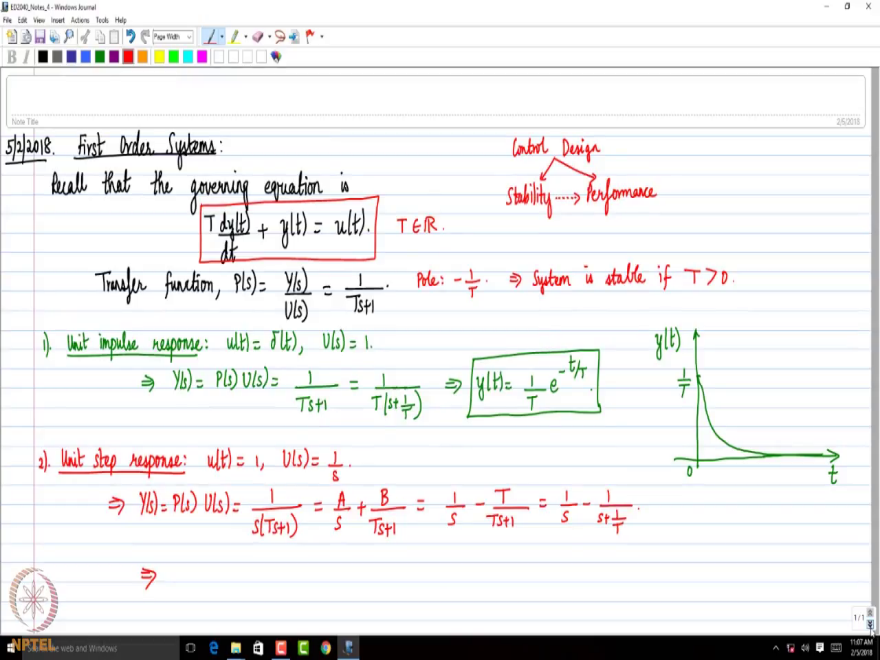 ED2040_Notes_4 - Windows Journal
File Edit View Insert Actions Tools Help
Page Width
B I
Note Title
2/5/2018
5/2/2018. First Order Systems:
Control Design
Stability ----> Performance
Recall that the governing equation is
T dy(t)/dt + y(t) = u(t). T ∈ ℝ.
Transfer function, P(s) = Y(s)/U(s) = 1/(Ts+1). Pole: -1/T. ⇒ System is stable if T > 0.
1). Unit impulse response: u(t) = δ(t), U(s) = 1.
⇒ Y(s) = P(s) U(s) = 1/(Ts+1) = 1/(T(s+1/T)) ⇒ y(t) = 1/T e^(-t/T).
y(t)
1/T
0
t
2). Unit step response: u(t) = 1, U(s) = 1/s.
⇒ Y(s) = P(s) U(s) = 1/(s(Ts+1)) = A/s + B/(Ts+1) = 1/s - T/(Ts+1) = 1/s - 1/(s+1/T).
⇒
1/1
NPTEL
the web and Windows
11:07 AM
2/5/2018